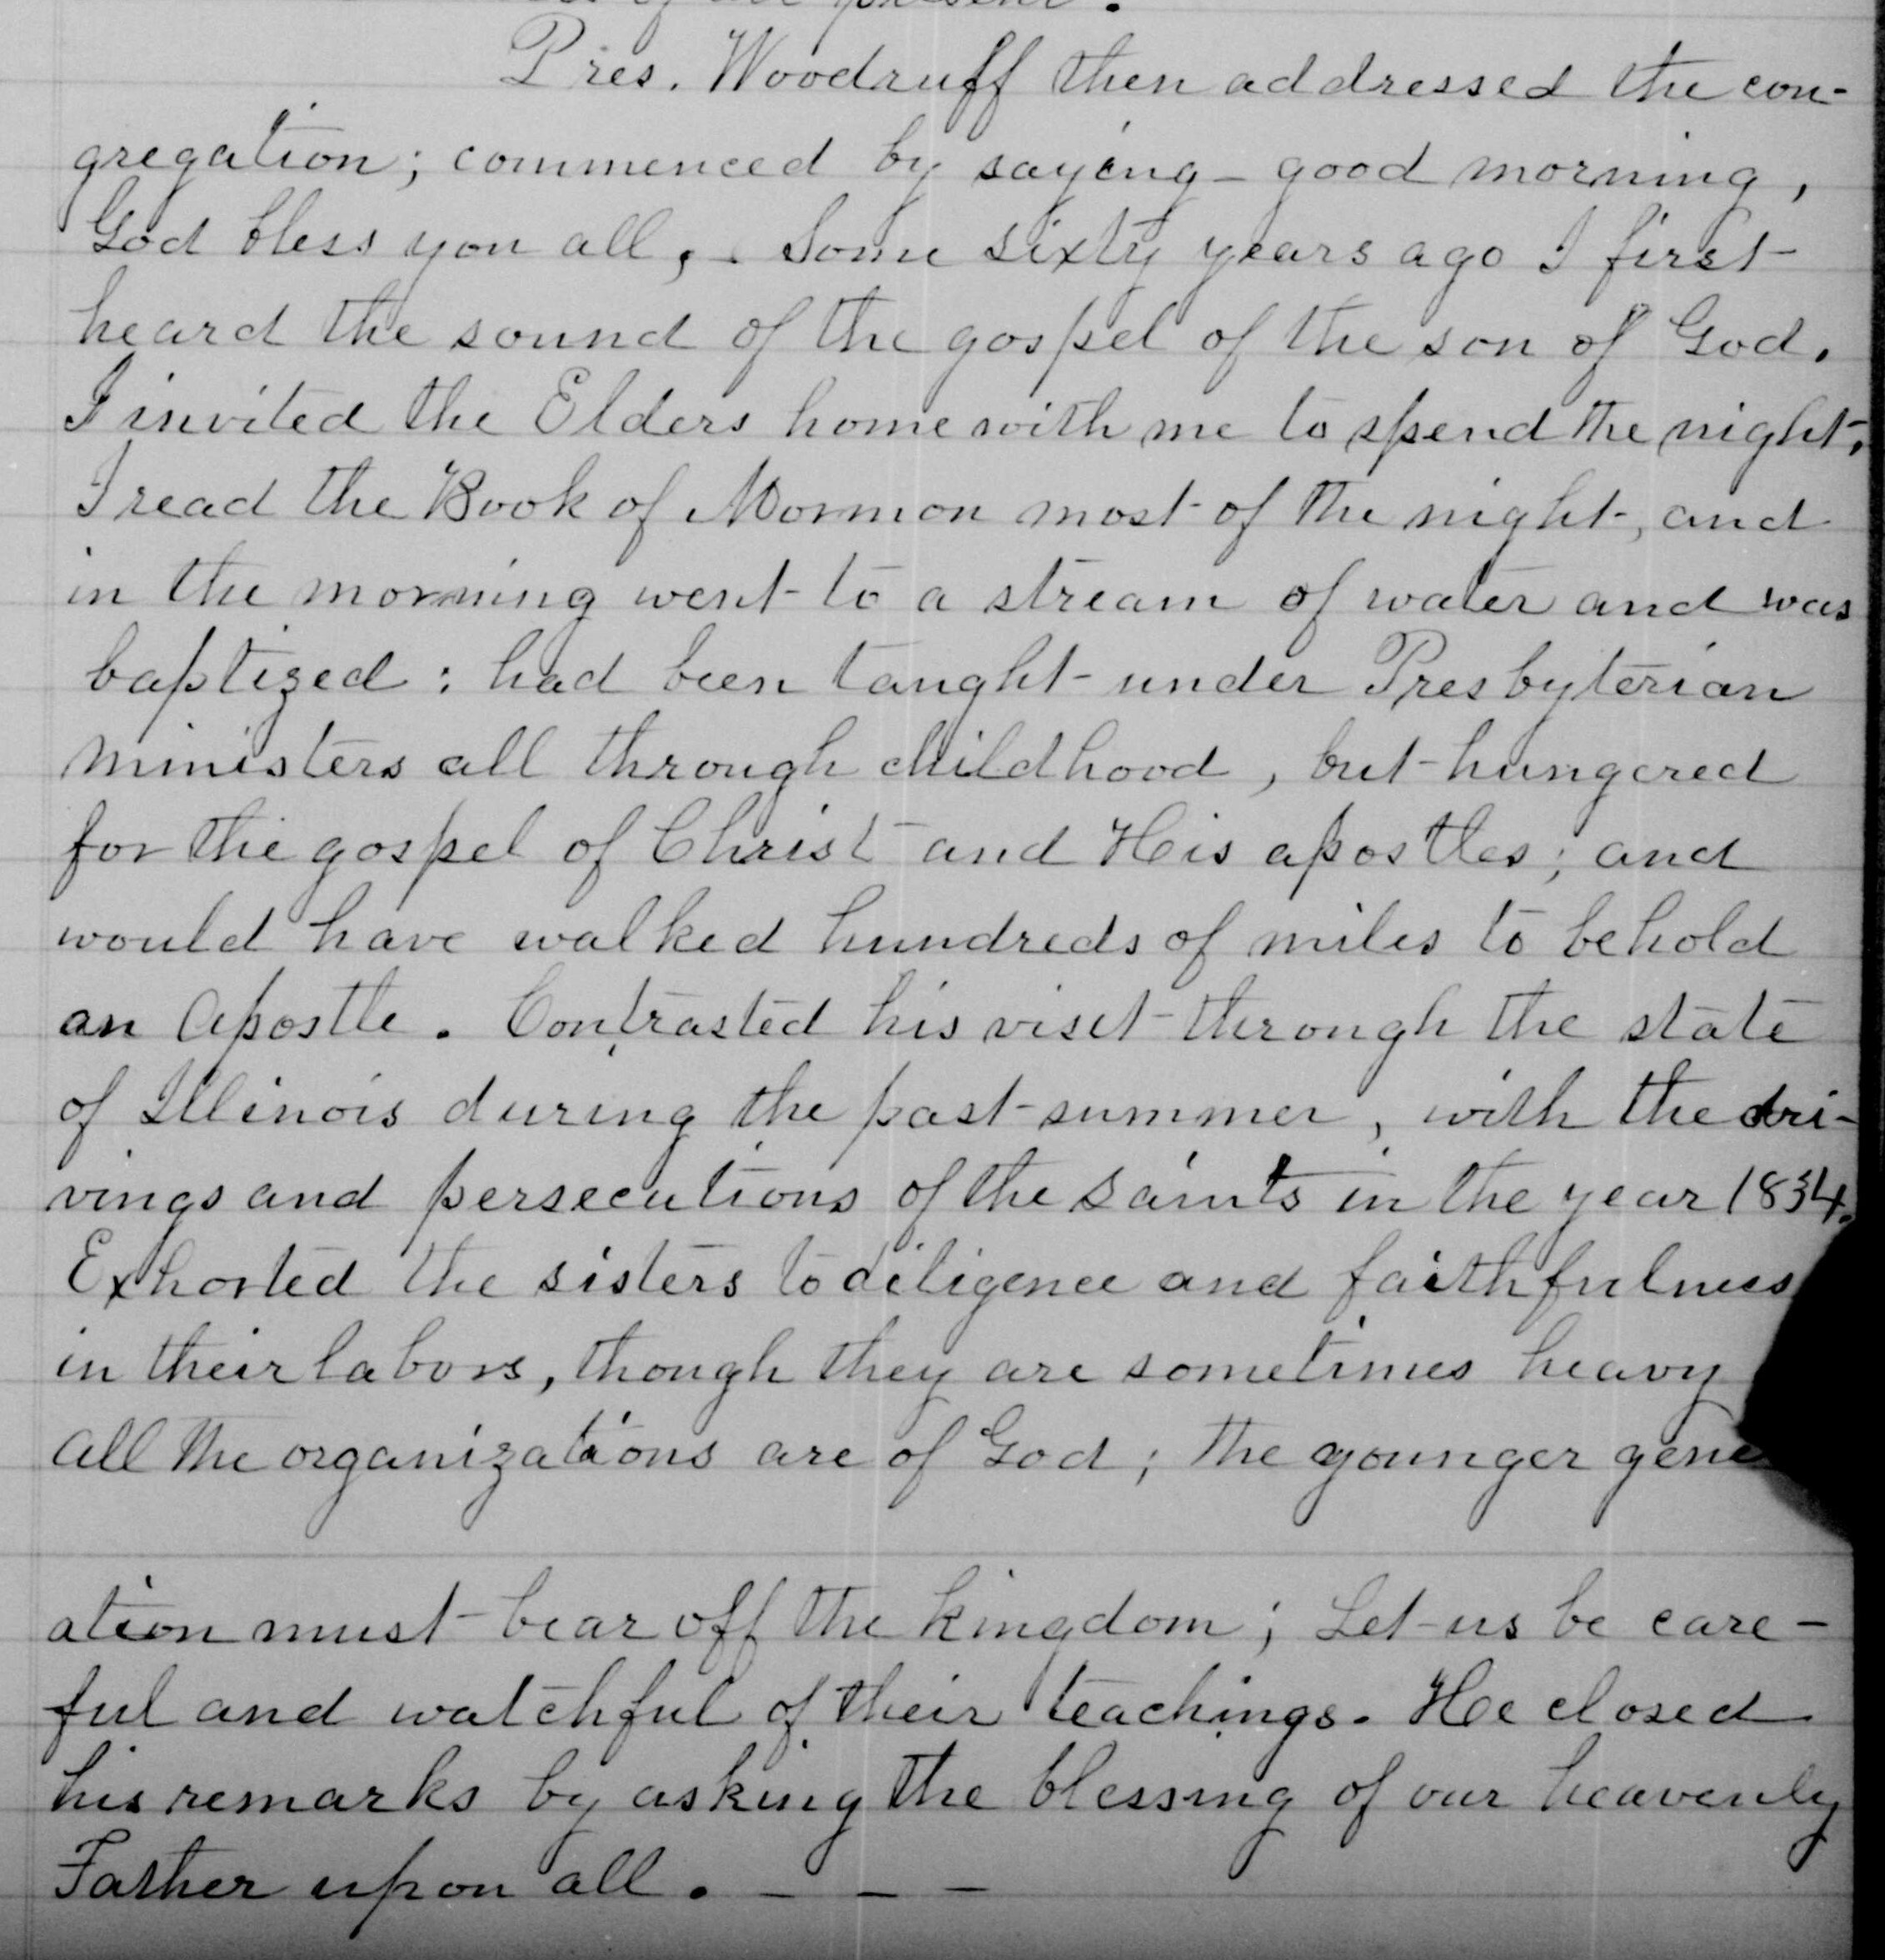 present.
Pres. Woodruff then addressed the con-
gregation; commenced by saying - good morning,
God bless you all, . Some sixty years ago I first
heard the sound of the gospel of the son of God.
I invited the Elders home with me to spend the night.
I read the Book of Mormon most of the night, and
in the morning went to a stream of water and was
baptized : had been taught under Presbyterian
ministers all through childhood, but hungered
for the gospel of Christ and His apostles; and
would have walked hundreds of miles to behold
an Apostle. Contrasted his visit through the state
of Illinois during the past summer, with the dri-
vings and persecutions of the saints in the year 1834.
Exhorted the sisters to diligence and faithfulness
in their labors, though they are sometimes heavy
all the organizations are of God; the younger gene
ation must bear off the kingdom; Let us be care-
ful and watchful of their teachings. He closed
his remarks by asking the blessing of our heavenly
Father upon all. - - -